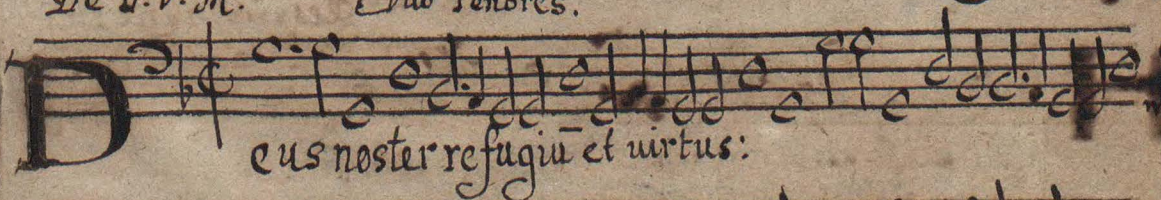 De B. V. M. Duo Tenores.
Deus noster refugiū et uirtus: